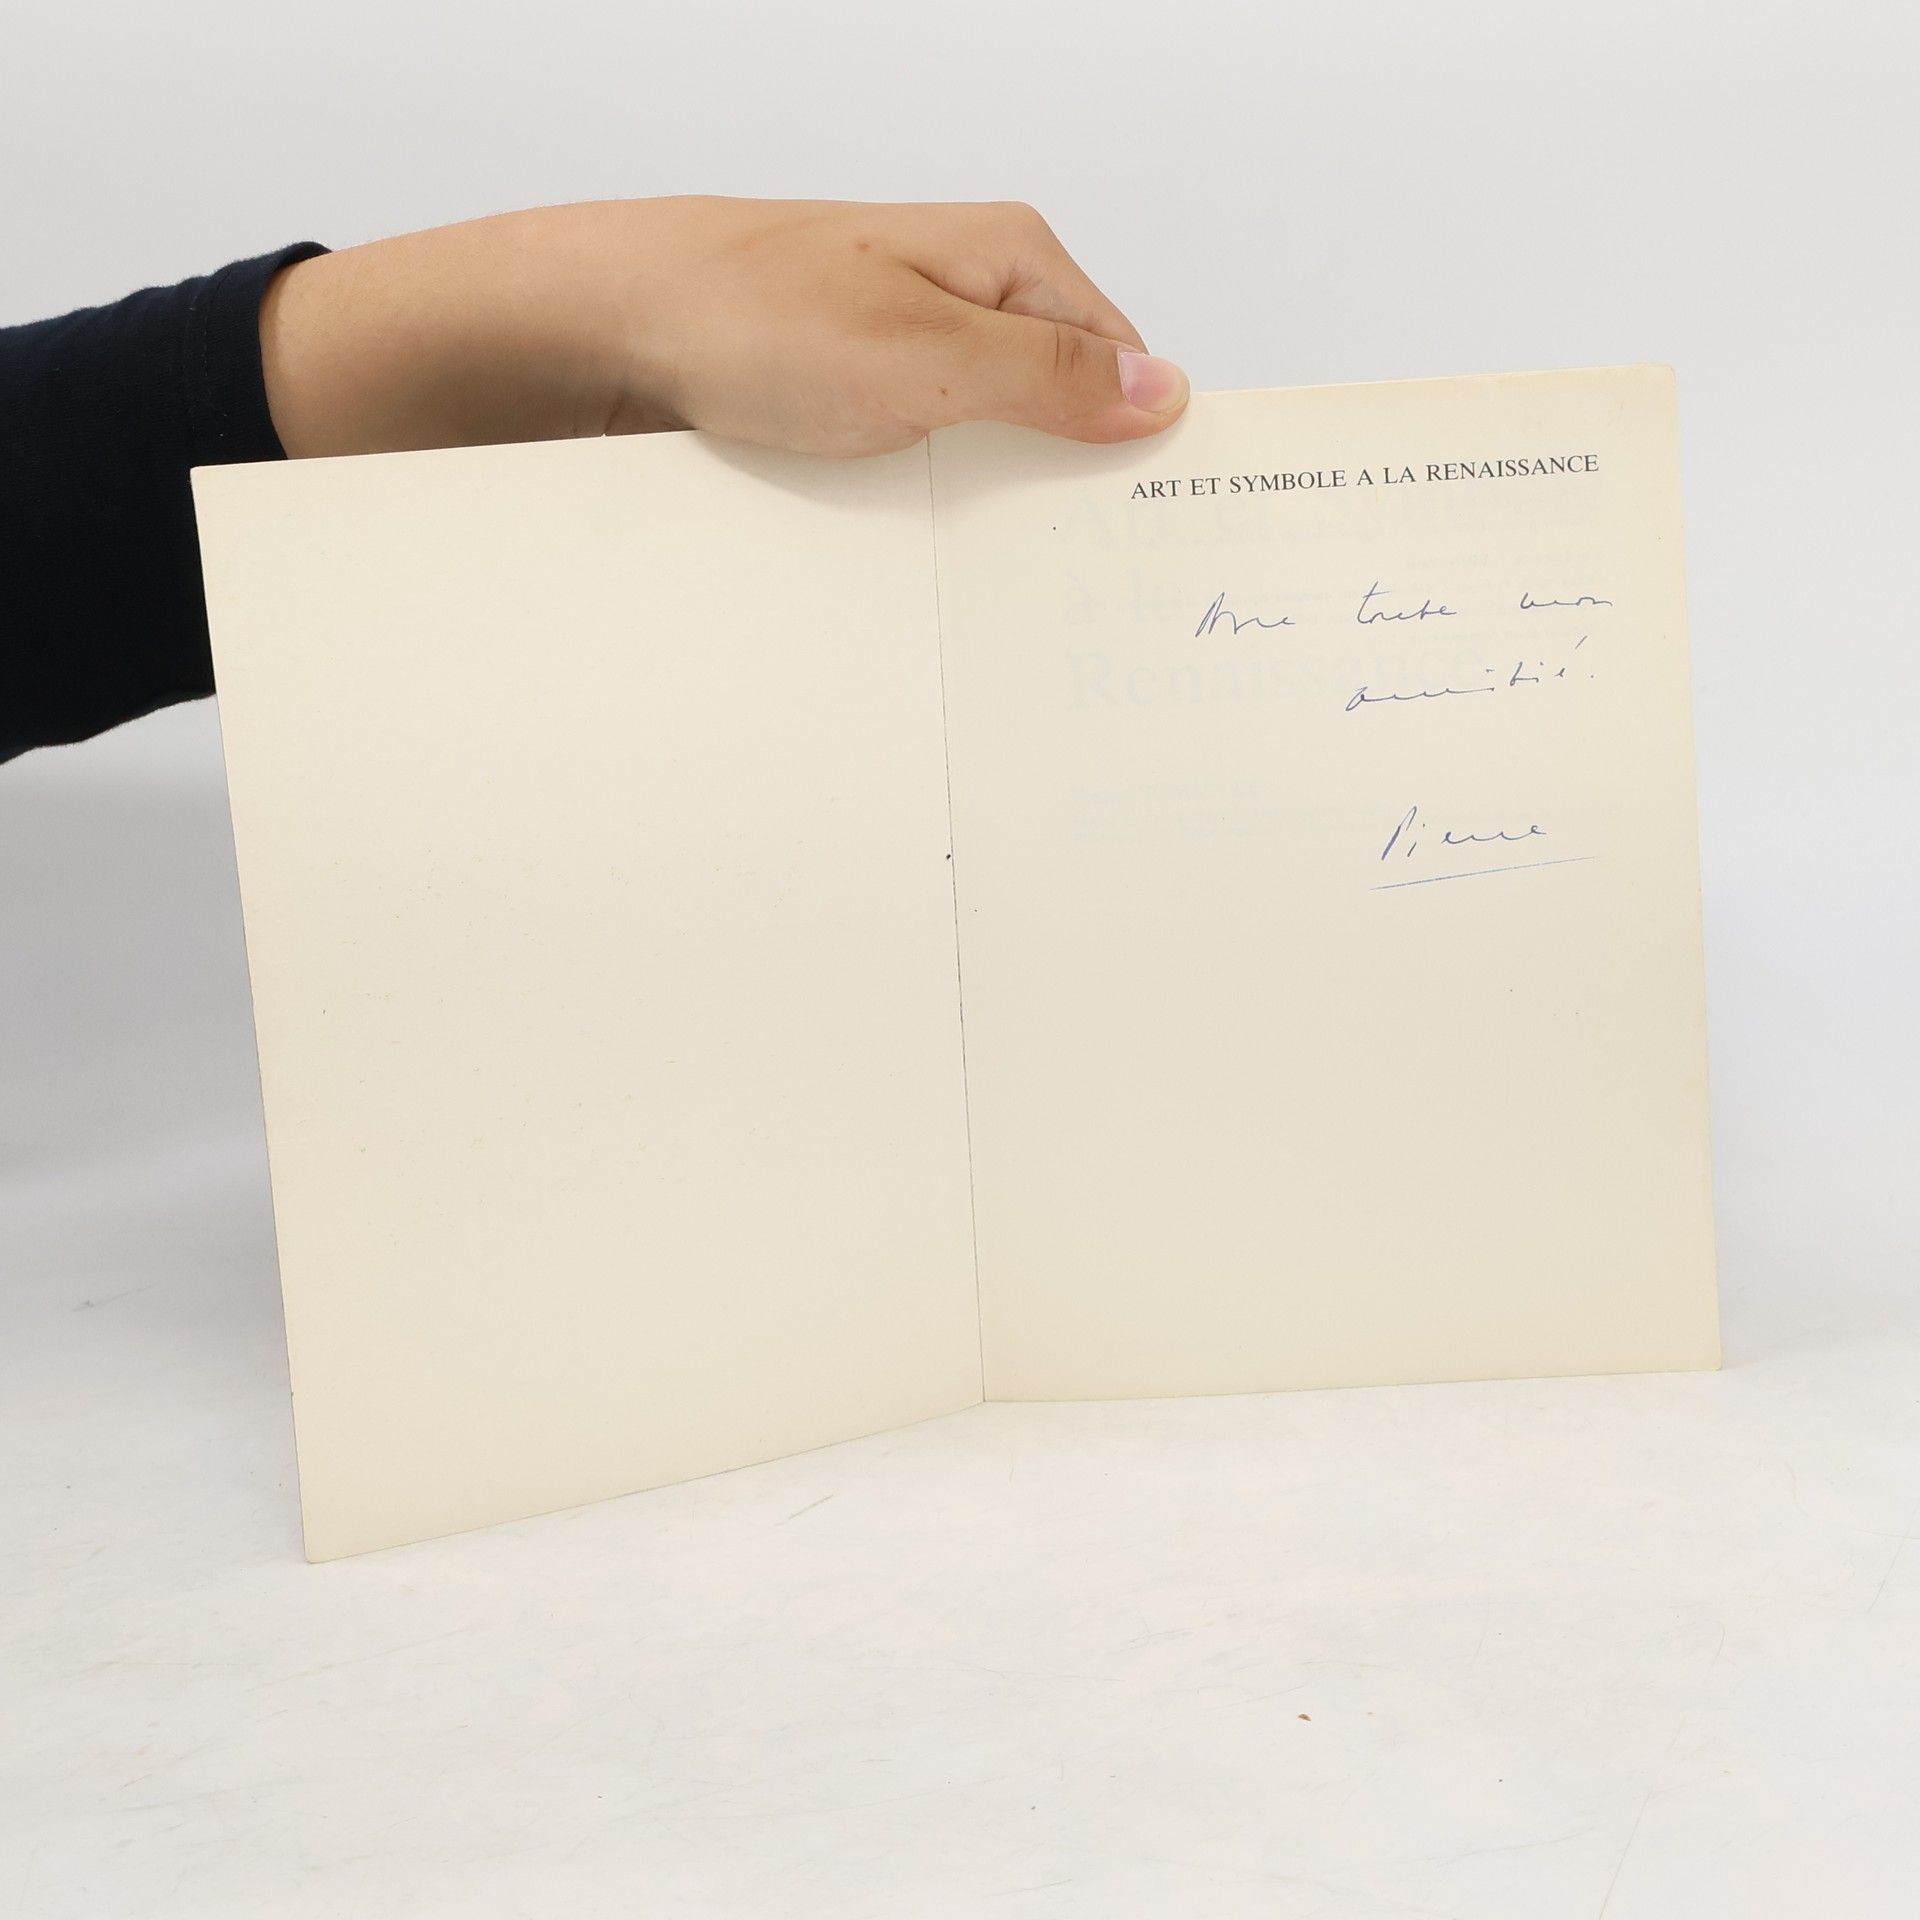 ART ET SYMBOLE A LA RENAISSANCE
Avec toute mon
amitié.
Pierre